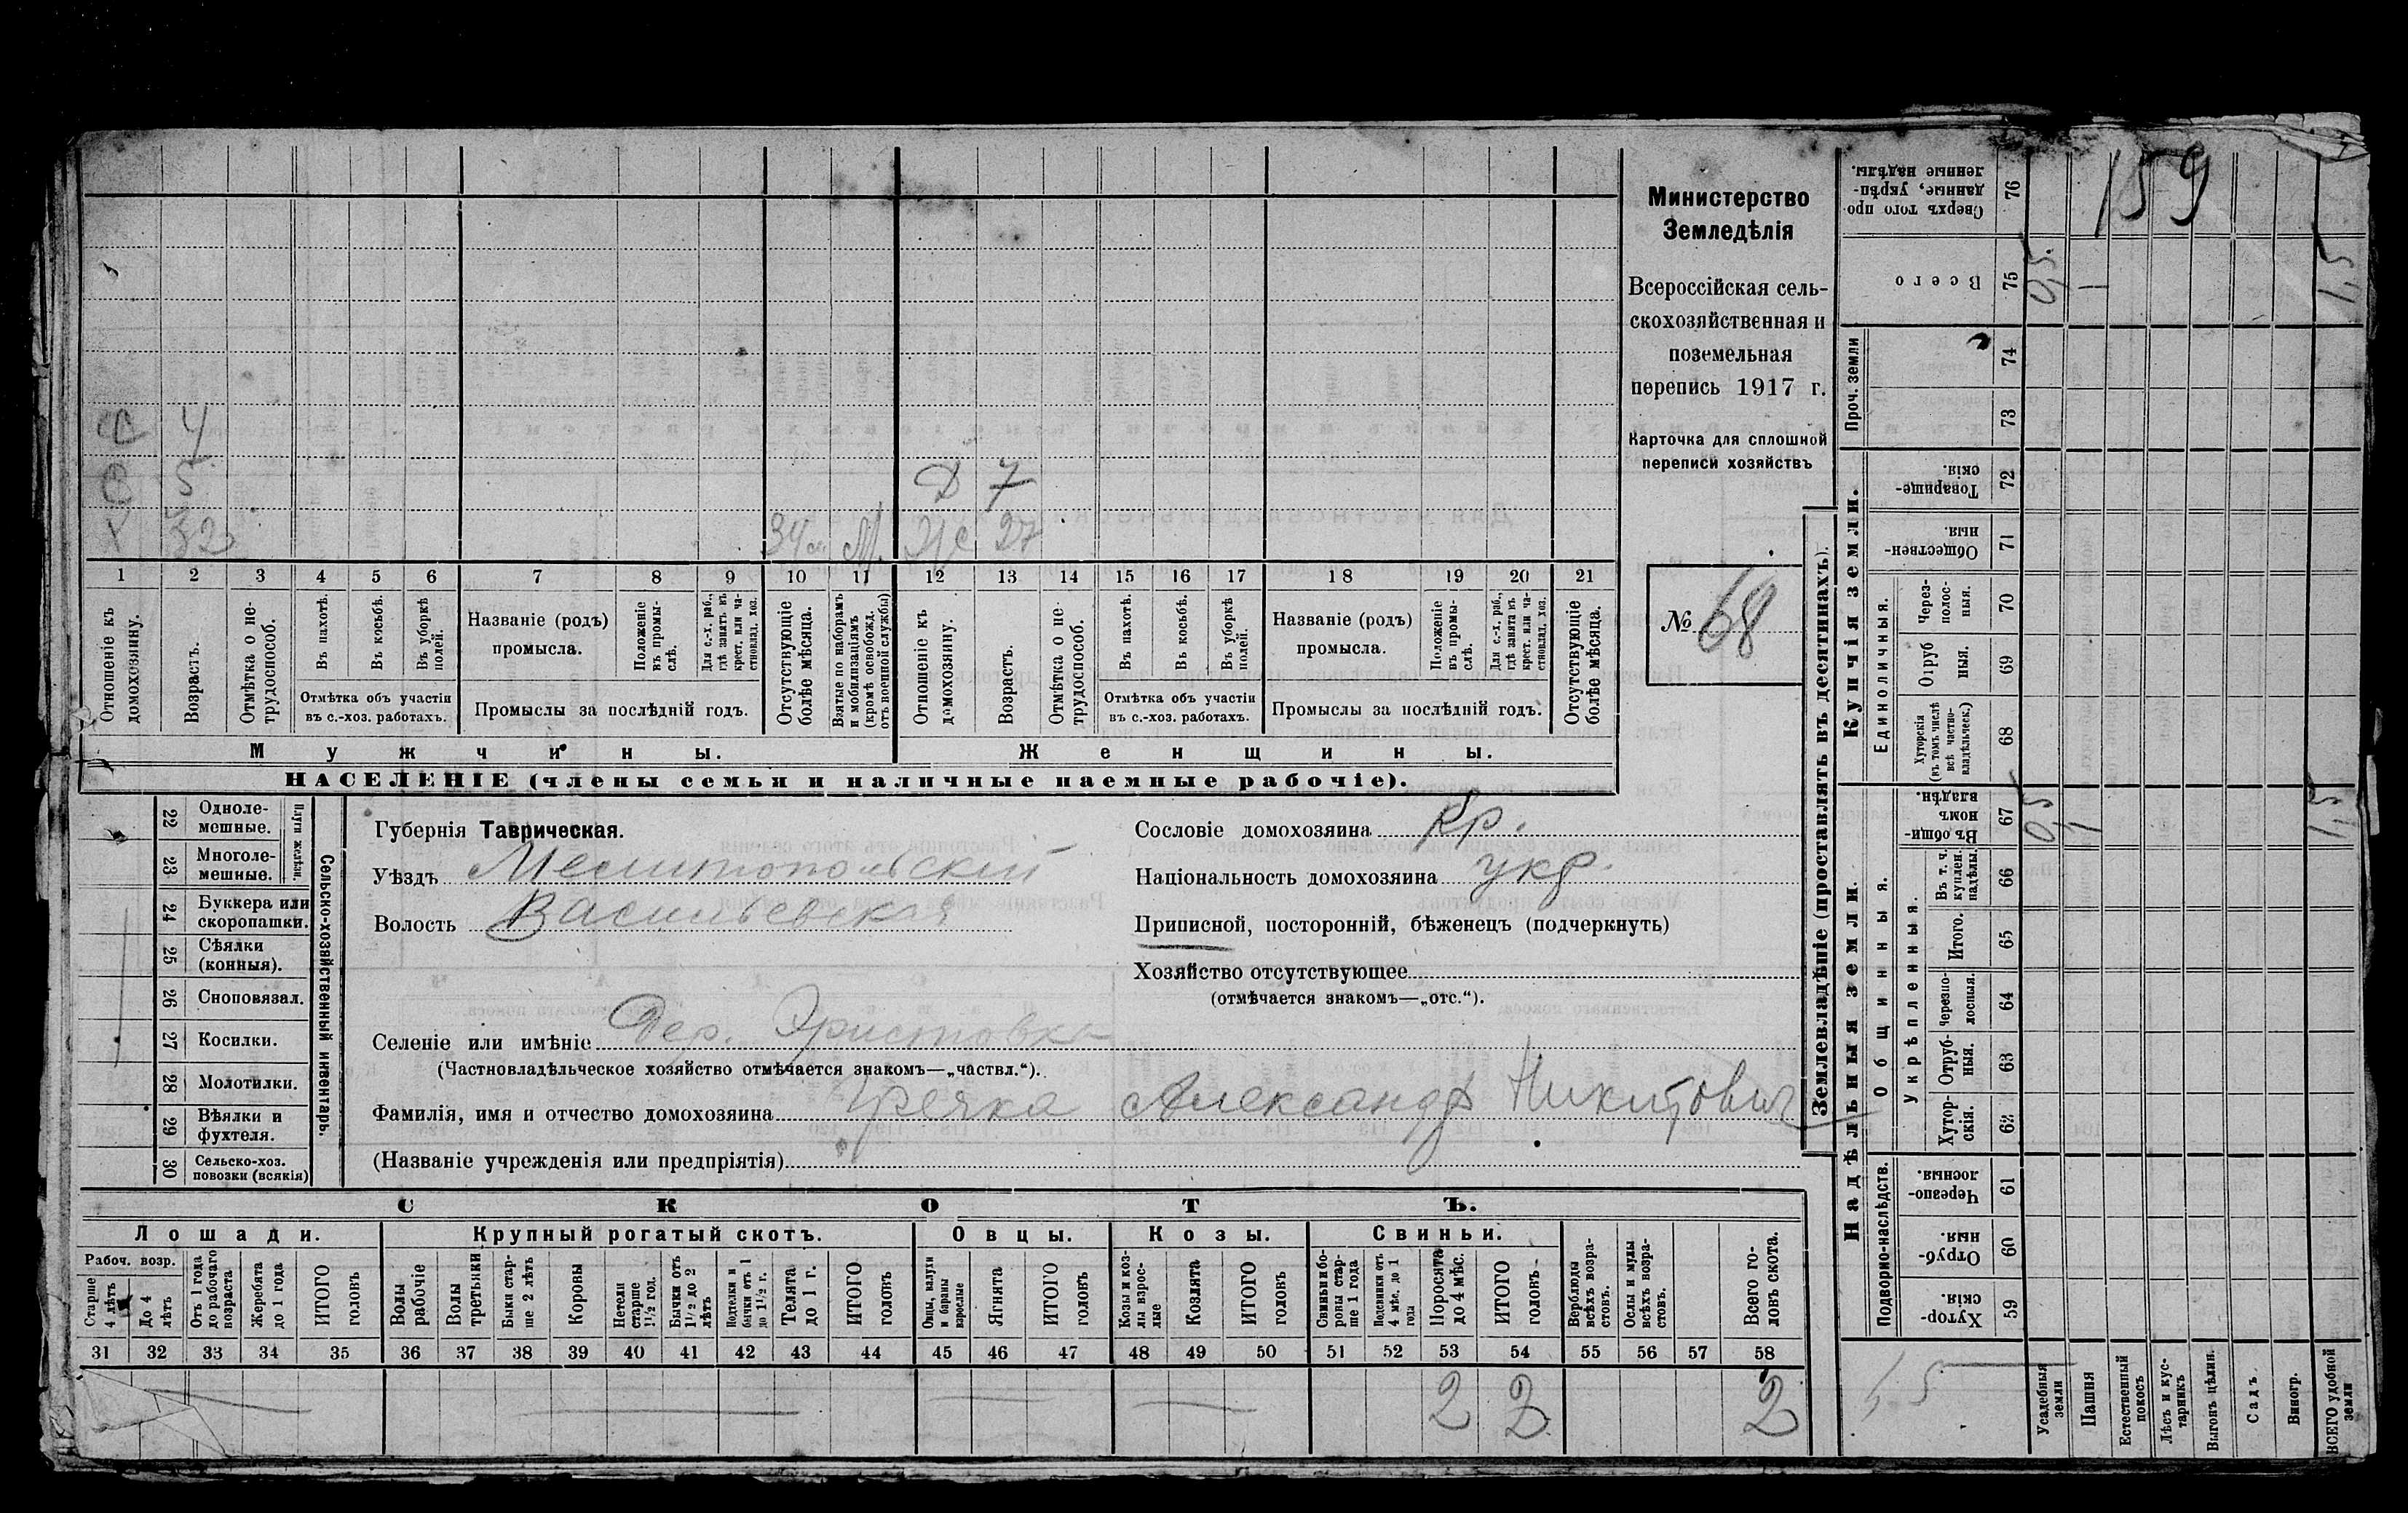 159
Министерство
Земледѣлія
Всероссійская сель-
скохозяйственная и
поземельная
перепись 1917 г.
Карточка для сплошной
переписи хозяйствъ
№ 68
С 4
С 5 Д 7
Х 32 М. Ж 27
1 2 3 4 5 6 7 8 9 10 11 12 13 14 15 16 17 18 19 20 21
Отношеніе къ домохозяину.
Возрастъ.
Отмѣтка о не-трудоспособ.
Въ пахотѣ.
Въ косьбѣ.
Въ уборкѣ полей.
Отмѣтка объ участіи
въ с.-хоз. работахъ.
Названіе (родъ)
промысла.
Положеніе въ промы-слѣ.
Для с.-х. раб., гдѣ занятъ въ крест. или ча-стновлад. хоз.
Промыслы за послѣдній годъ.
Отсутствующіе болѣе мѣсяца.
Взятые по наборамъ и мобилизаціямъ (кромѣ освобожд. отъ военной службы)
Отношеніе къ домохозяину.
Возрастъ.
Отмѣтка о не-трудоспособ.
Въ пахотѣ.
Въ косьбѣ.
Въ уборкѣ полей.
Отмѣтка объ участіи
въ с.-хоз. работахъ.
Названіе (родъ)
промысла.
Положеніе въ промы-слѣ.
Для с.-х. раб., гдѣ занята въ крест. или ча-стновлад. хоз.
Промыслы за послѣдній годъ.
Отсутствующіе болѣе мѣсяца.
Мужчины.
Женщины.
НАСЕЛЕНІЕ (члены семьи и наличные наемные рабочіе).
Сельско-хозяйственный инвентарь.
Плуги желѣзн.
22 Одноле-мешные.
23 Многоле-мешные.
24 Буккера или скоропашки.
25 Сѣялки (конныя).
26 Сноповязал.
27 Косилки.
28 Молотилки.
29 Вѣялки и фухтеля.
30 Сельско-хоз. повозки (всякія)
Губернія Таврическая.
Уѣздъ Мелитопольский
Волость Васильевская
Сословіе домохозяина Кр.
Національность домохозяина укр.
Приписной, посторонній, бѣженецъ (подчеркнуть)
Хозяйство отсутствующее
(отмѣчается знакомъ—„отс.“).
Селеніе или имѣніе Дер. Христовка
(Частновладѣльческое хозяйство отмѣчается знакомъ—„частвл.“).
Фамилія, имя и отчество домохозяина Гречка Александр Никитович
(Названіе учрежденія или предпріятія)
СКОТЪ.
Лошади.
Крупный рогатый скотъ.
Овцы.
Козы.
Свиньи.
Рабоч. возр.
Старше 4 лѣтъ
До 4 лѣтъ
Отъ 1 года до рабочаго возраста
Жеребята до 1 года
ИТОГО головъ
Волы рабочіе
Волы третьяки
Быки стар-ше 2 лѣтъ
Коровы
Нетели старше 1½ год.
Бычки отъ 1½ до 2 лѣтъ
Подтелки и бычки отъ 1 до 1½ г.
Телята до 1 г.
ИТОГО головъ
Овцы, валухи и бараны взрослые
Ягнята
ИТОГО головъ
Козы и коз-лы взрос-лые
Козлята
ИТОГО головъ
Свиньи и бо-ровы стар-ше 1 года
Подсвинки отъ 4 мѣс. до 1 года
Поросята до 4 мѣс.
ИТОГО головъ
Верблюды всѣхъ возра-стовъ.
Ослы и мулы всѣхъ возра-стовъ.
Всего го-ловъ скота.
31 32 33 34 35 36 37 38 39 40 41 42 43 44 45 46 47 48 49 50 51 52 53 54 55 56 57 58
2 2 2
Землевладѣніе (проставлять въ десятинахъ).
Надѣльныя земли.
Купчія земли.
Проч. земли
Подворно-наслѣдств.
Общинныя.
Укрѣпленныя.
Единоличныя.
76 Сверхъ того про-данные, укрѣп-ленные надѣлы.
75 Всего 0,5 1 1,5
74
73
72 Товарище-скія.
71 Обществен-ныя.
70 Через-полос-ныя.
69 Отруб-ныя.
68 Хуторскія (въ томъ числѣ всѣ частно-владѣльческ.)
67 Въ общин-номъ владѣн. 0,5 1 1,5
66 Въ т. ч. куплен. надѣлы.
65 Итого.
64 Черезпо-лосныя.
63 Отруб-ныя.
62 Хутор-скія.
61 Черезпо-лосныя.
60 Отруб-ныя.
59 Хутор-скія.
1,5
Усадебныя земли
Пашня
Естественный покосъ
Лѣсъ и кус-тарникъ
Выгонъ цѣлин.
Садъ
Виногр.
ВСЕГО удобной земли